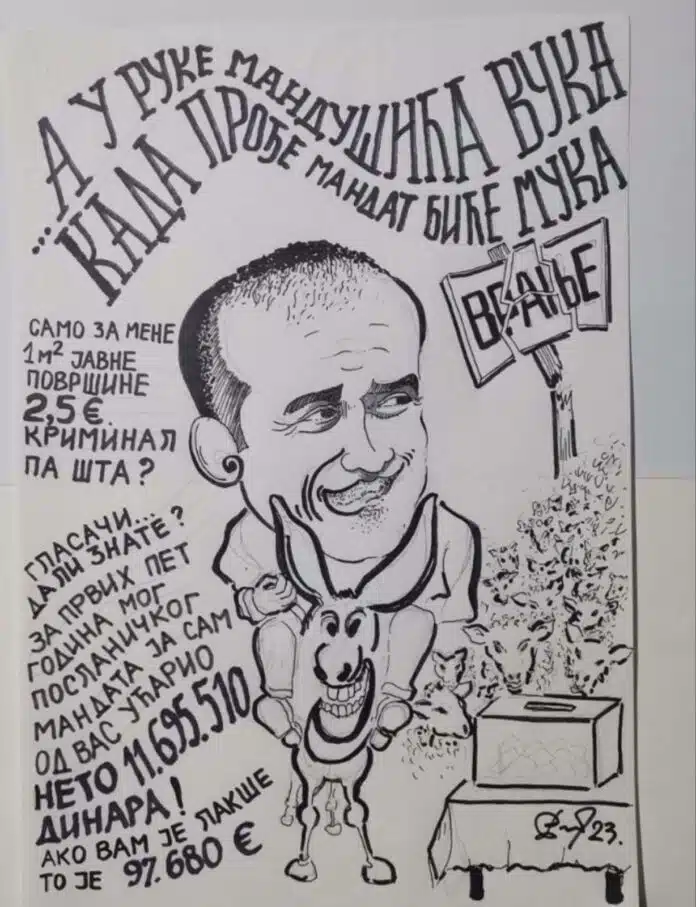 А У РУКЕ МАНДУШИЋА ВУКА
...КАДА ПРОЂЕ МАНДАТ БИЋЕ МУКА
ВРАЊЕ
САМО ЗА МЕНЕ
1м² ЈАВНЕ
ПОВРШИНЕ
2,5 €.
КРИМИНАЛ
ПА ШТА?
ГЛАСАЧИ...
ДА ЛИ ЗНАТЕ?
ЗА ПРВИХ ПЕТ
ГОДИНА МОГ
ПОСЛАНИЧКОГ
МАНДАТА ЈА САМ
ОД ВАС УЋАРИО
НЕТО 11.695.510
ДИНАРА!
АКО ВАМ ЈЕ ЛАКШЕ
ТО ЈЕ 97.680 €
23.